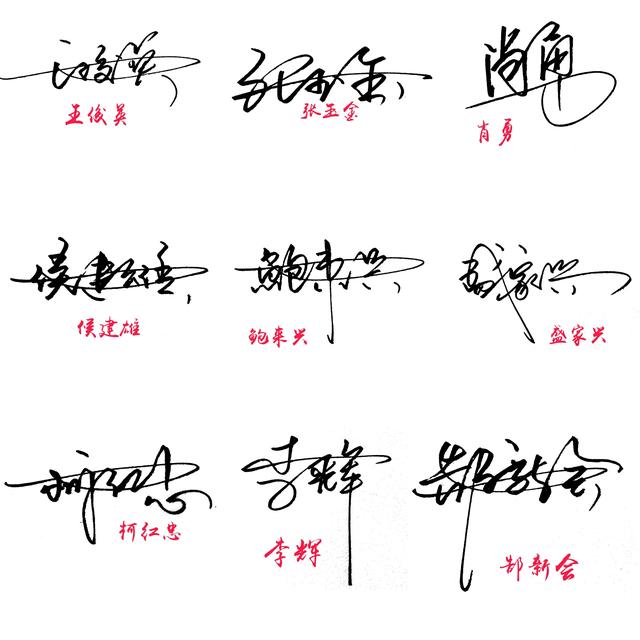 王俊英
张玉金
肖勇
侯建雄
鲍来兴
盛家兴
柯红忠
李辉
郜新会